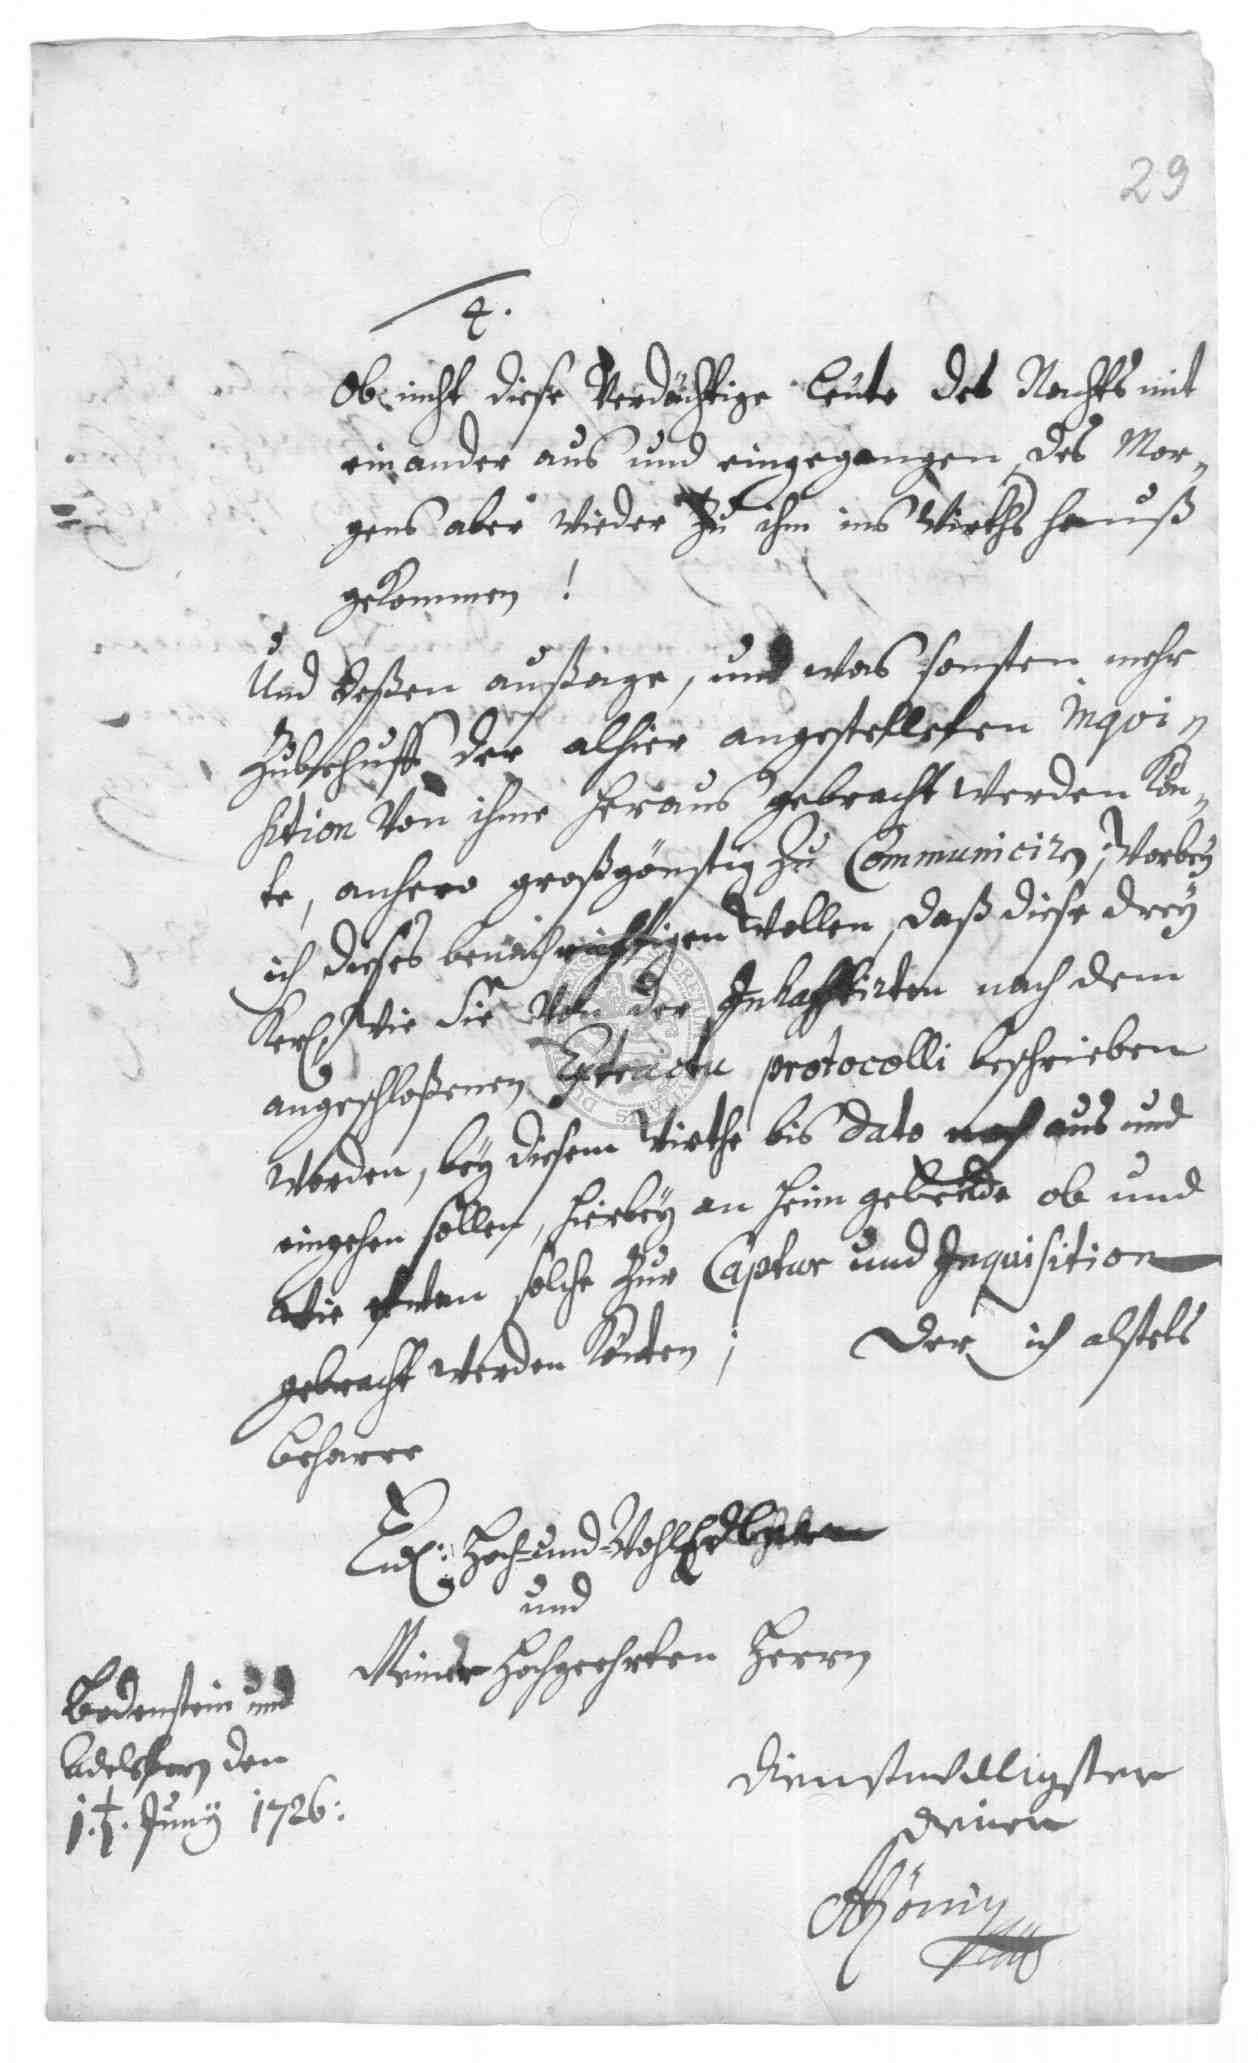 29
4.
Ob nicht diese Verdächtige Leute des Nachts mit
ein ander aus und eingegangen, des Mor-
gens aber wieder zu ihm ins Wirths hauß
gekommen!
Und deßen außage, und was sonsten mehr
Zubehuff der alhier angestelleten Inqvi-
sition Von ihme heraus gebracht werden kön-
te, anhero großgönstig zu Communiciren, Worbey
ich dieses benachrichtigen Wollen, daß diese drey
Kerl, wie sie Von der Inhafftirten nach dem
angeschloßenen Extractu protocolli beschrieben
worden, bey diesem Wirthe bis dato noch aus und
eingehen sollen, hierbey an heim gebende ob und
wie etwan solche zur Captur und Inquisition
gebracht werden könten; Der ich alstets
beharre
Ew: Hoch- und WohlEdl
und
Meiner Hochgeehrten Herrn
Bodenstein und
Adelsborn den
Juny 1726:
dienstwilligster
diener
König